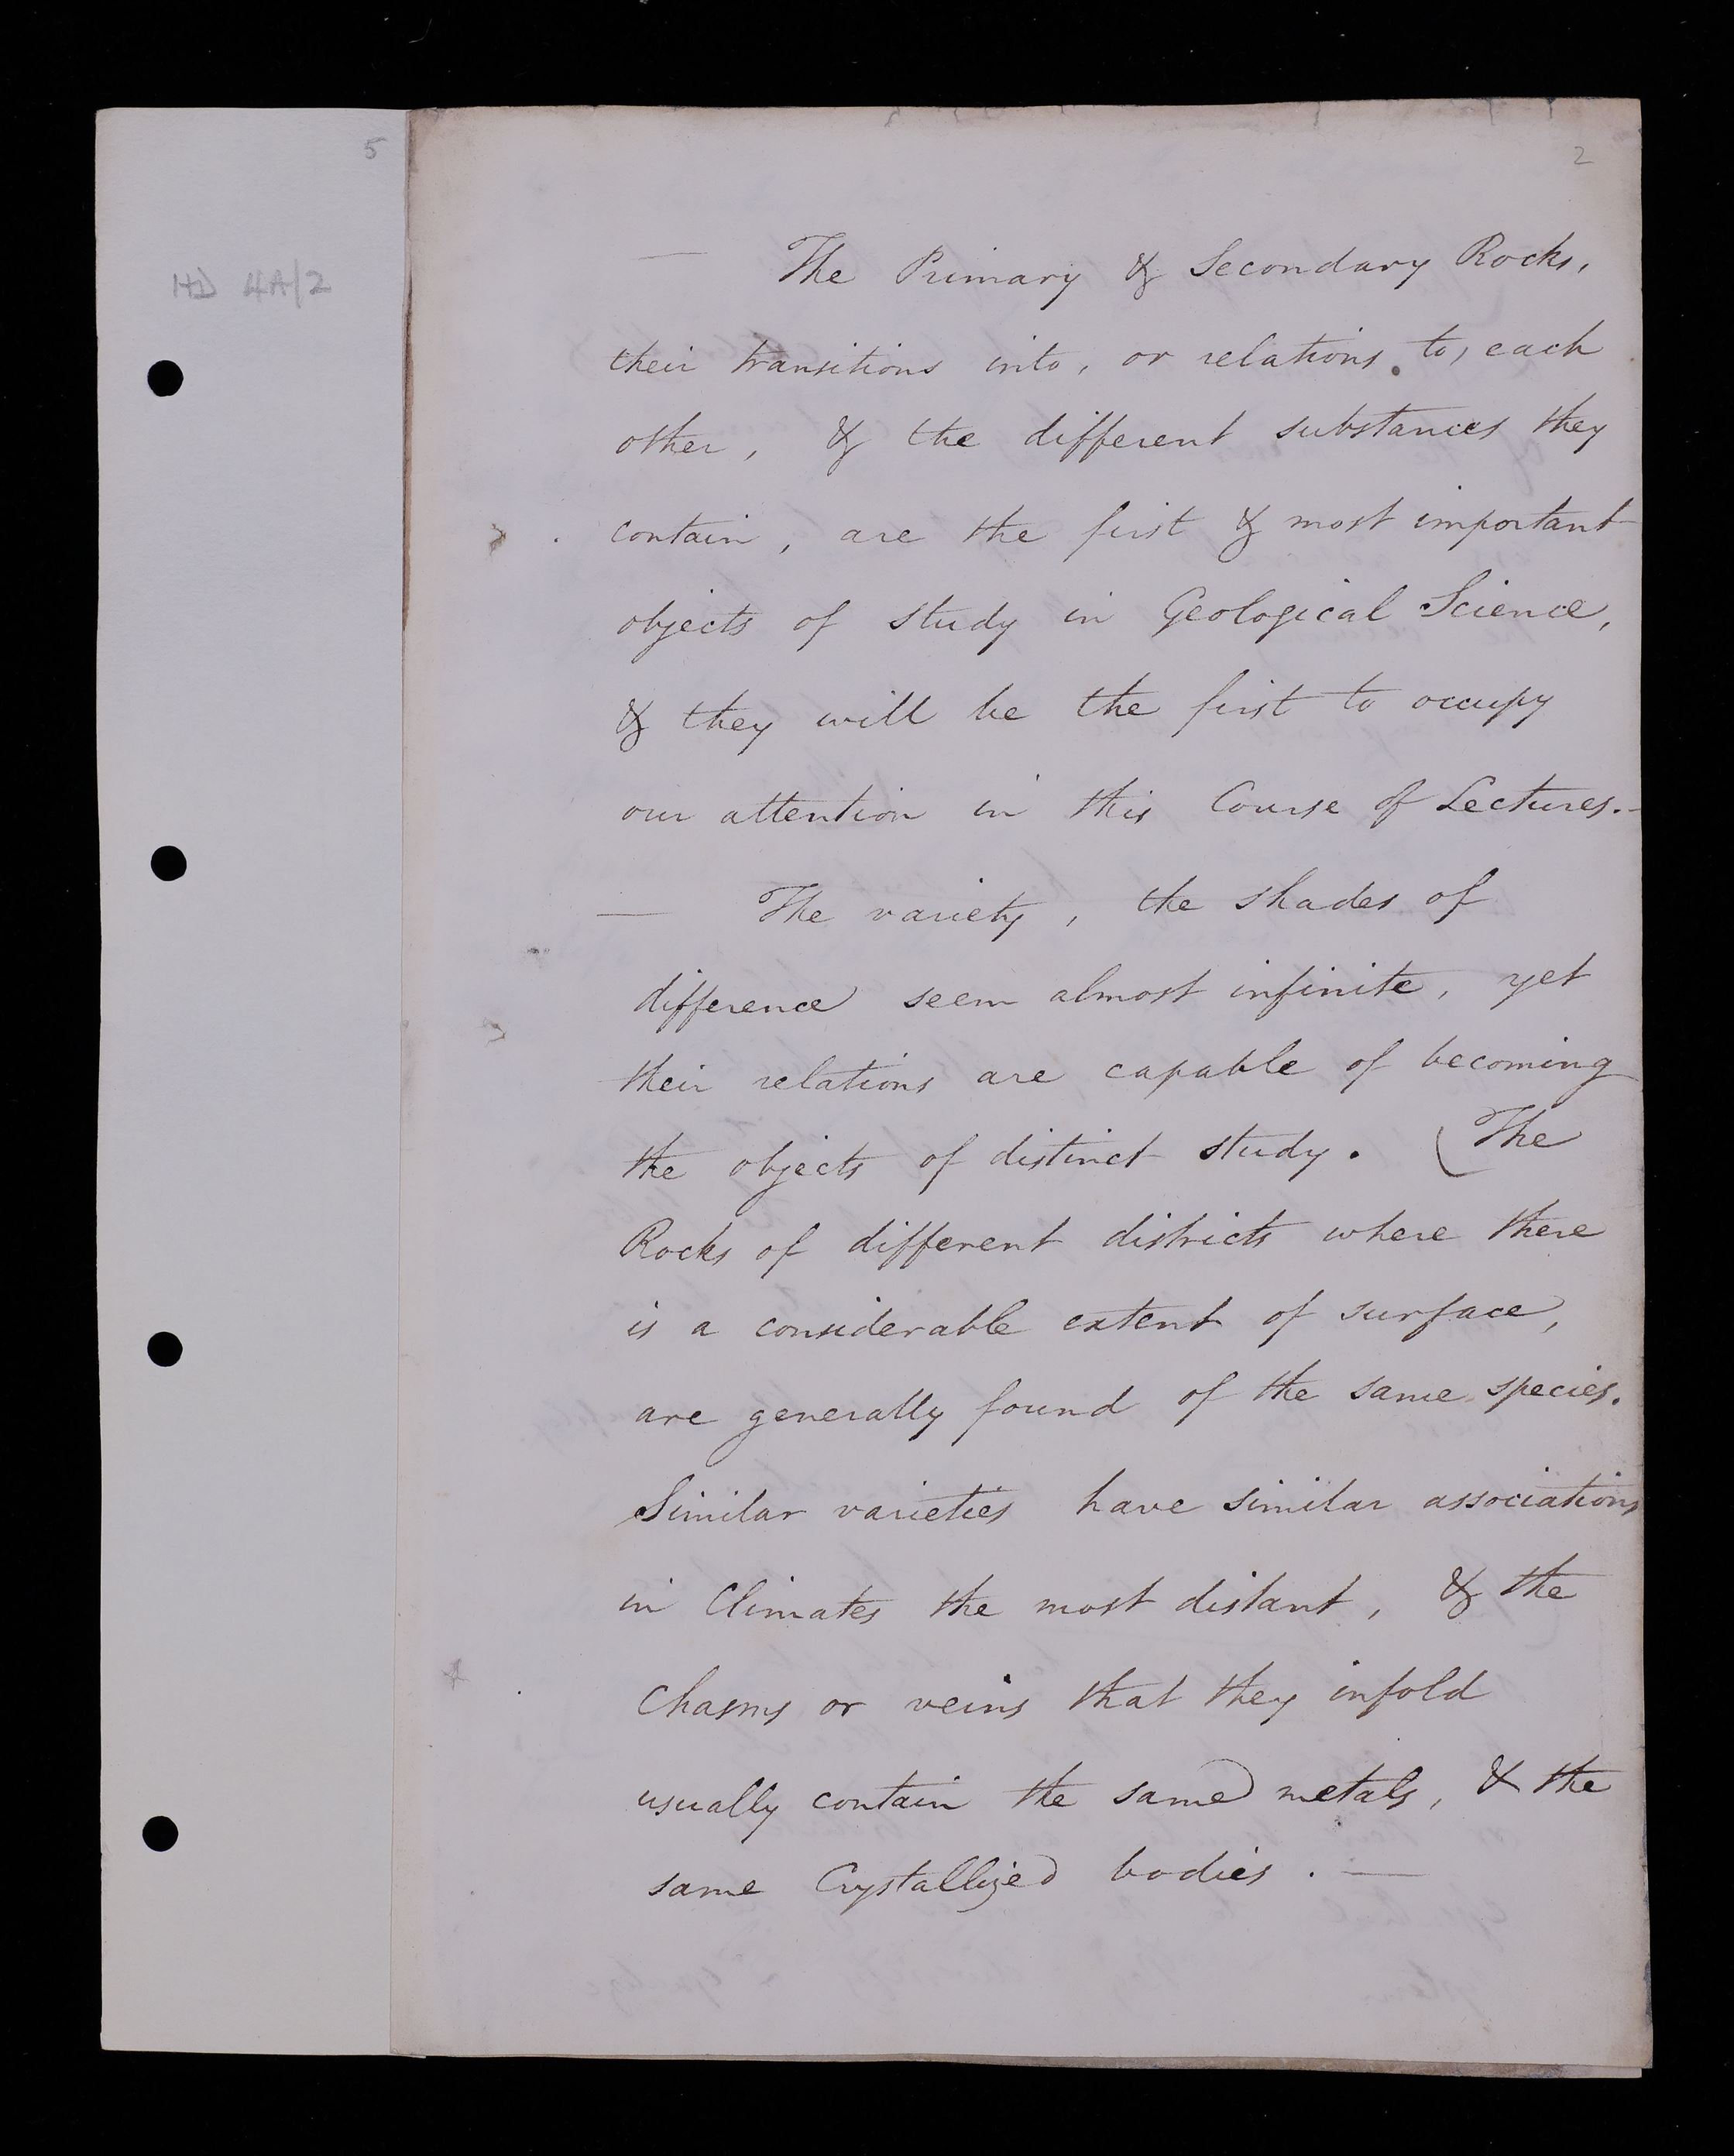 5
2
HD 4A/2
— The Primary & Secondary Rocks,
their transitions into, or relations to, each
other, & the different substances they
contain, are the first & most important
objects of study in Geological Science,
& they will be the first to occupy
our attention in this Course of Lectures.—
— The variety, the shades of
difference seem almost infinite, yet
their relations are capable of becoming
the objects of distinct study. (The
Rocks of different districts where there
is a considerable extent of surface,
are generally found of the same species.
Similar varieties have similar associations
in Climates the most distant, & the
Chasms or veins that they infold
usually contain the same metals, & the
same Crystallized bodies. —